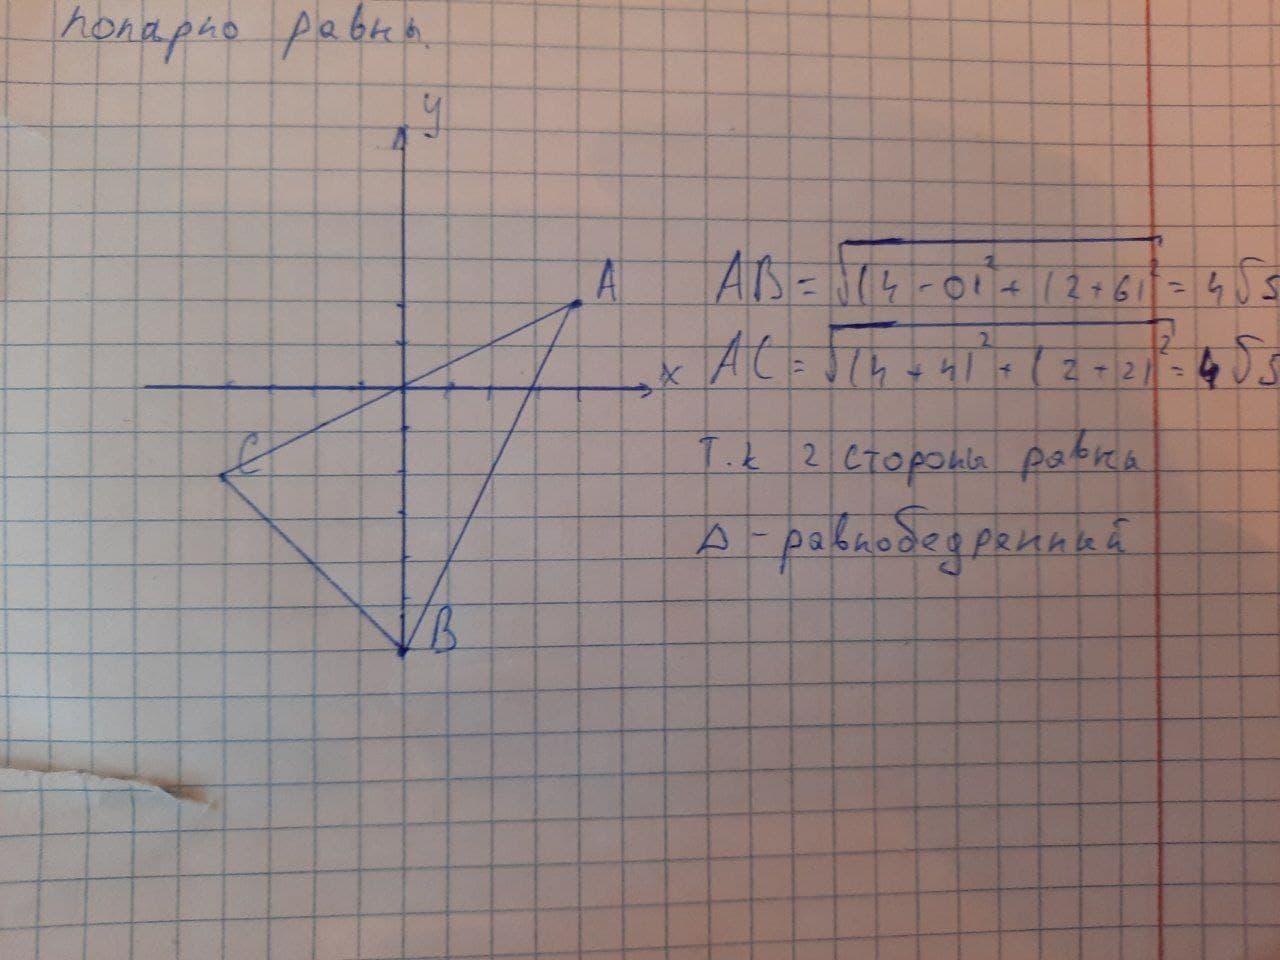 попарно равны.
y
A
x
C
B
AB = √(4 - 0)² + (2 + 6)² = 4√5
AC = √(4 + 4)² + (2 + 2)² = 4√5
Т.к 2 стороны равны
Δ - равнобедренный